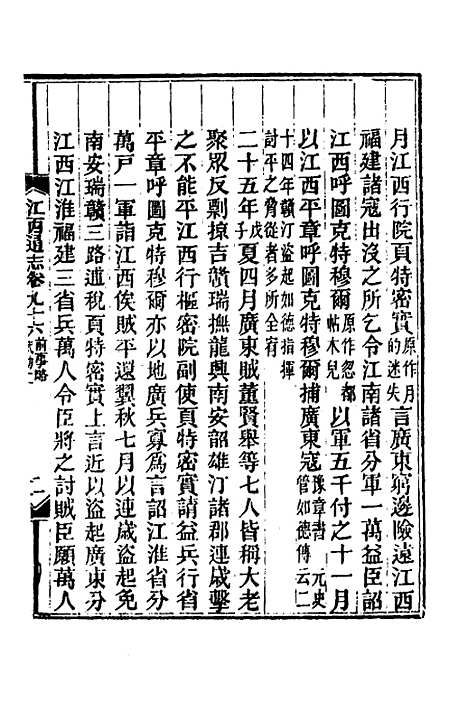 月江西行院頁特密實原作月的迷失言廣東窮邊險遠江西
福建諸寇出沒之所乞令江南諸省分軍一萬益臣詔
江西呼圖克特穆爾原作忽都帖木兒以軍五千付之十一月
以江西平章呼圖克特穆爾捕廣東寇豫章書元史管如德傳云二
十四年贛汀盜起如德指揮討平之脅從者多所全宥
二十五年戊子夏四月廣東賊董賢舉等七人皆稱大老
聚眾反剽掠吉贛瑞撫龍興南安韶雄汀諸郡連歲擊
之不能平江西行樞密院副使頁特密實請益兵行省
平章呼圖克特穆爾亦以地廣兵寡為言詔江淮省分
萬戶一軍詣江西俟賊平還翼秋七月以連歲盜起免
南安瑞贛三路逋稅頁特密實上言近以盜起廣東分
江西江淮福建三省兵萬人令臣將之討賊臣願萬人
江西通志卷九十六前事略
二